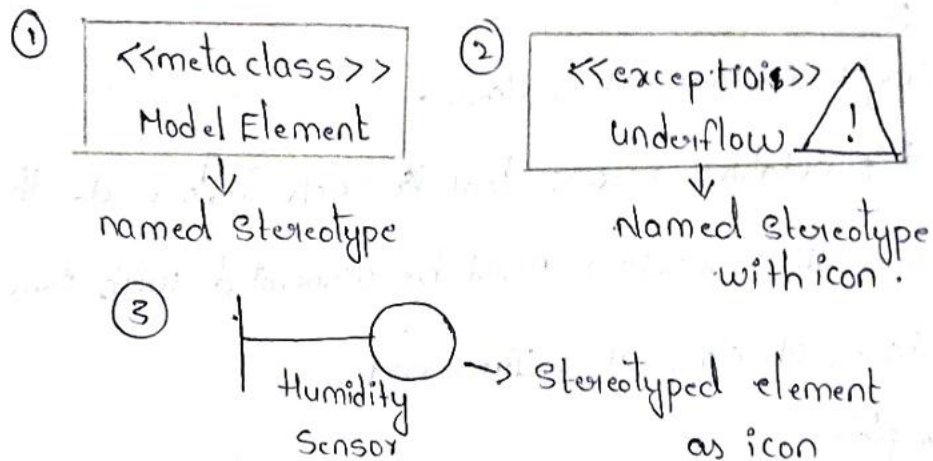 ①
<<meta class>>
Model Element
named Stereotype
②
<<exceptiois>>
underflow
!
Named stereotype
with icon.
③
Humidity
Sensor
Stereotyped element
as icon